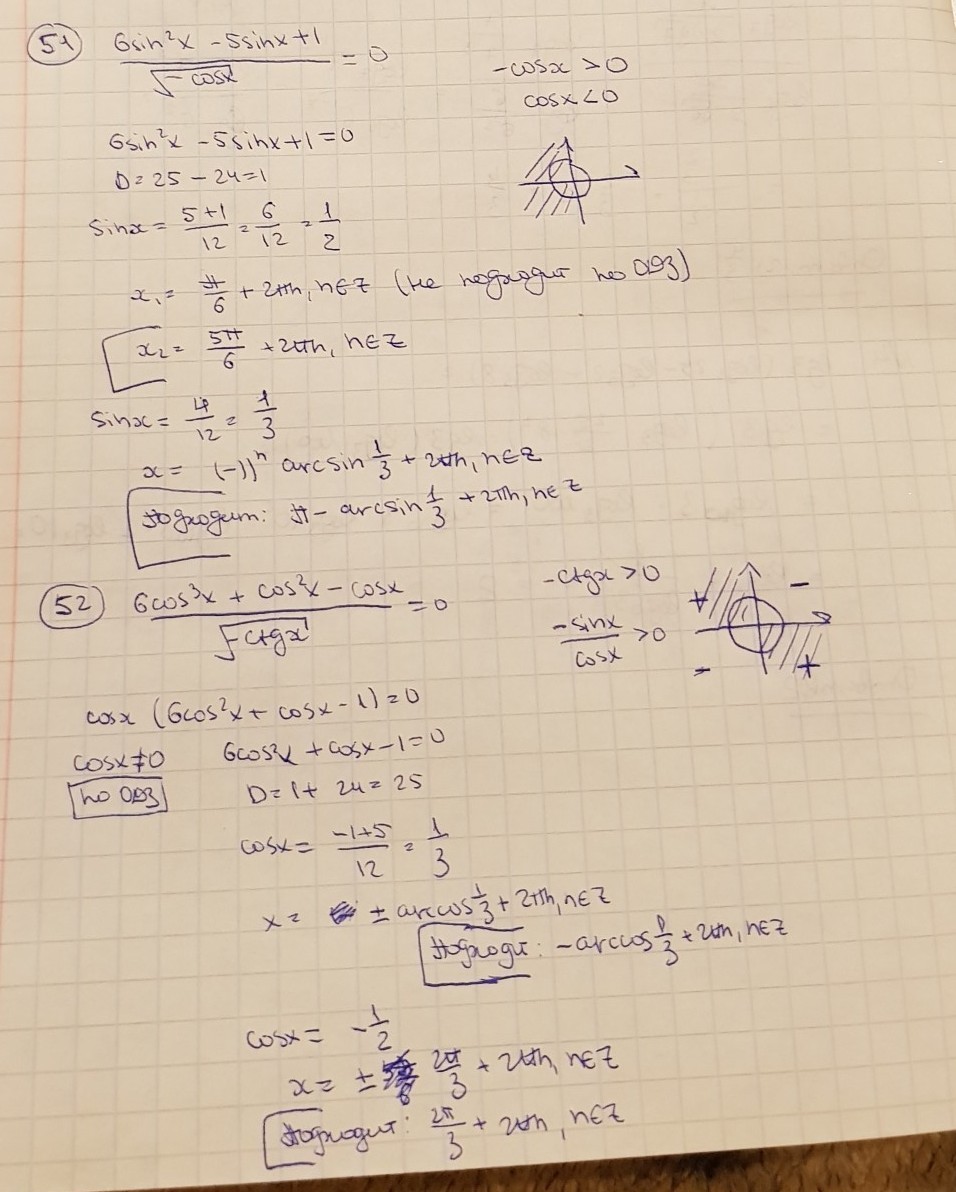 51) (6sin²x - 5sinx + 1) / √(-cosx) = 0
-cosx > 0
cosx < 0
6sin²x - 5sinx + 1 = 0
D = 25 - 24 = 1
sinx = (5+1)/12 = 6/12 = 1/2
x₁ = π/6 + 2πn, n∈Z (не подходит по ОДЗ)
x₂ = 5π/6 + 2πn, n∈Z
sinx = 4/12 = 1/3
x = (-1)ⁿ arcsin 1/3 + 2πn, n∈Z
Подходит: π - arcsin 1/3 + 2πn, n∈Z
52) (6cos³x + cos²x - cosx) / √(-ctgx) = 0
-ctgx > 0
-sinx/cosx > 0
+ -
- +
cosx (6cos²x + cosx - 1) = 0
cosx ≠ 0 6cos²x + cosx - 1 = 0
по ОДЗ D = 1 + 24 = 25
cosx = (-1+5)/12 = 1/3
x = ± arccos 1/3 + 2πn, n∈Z
Подходит: -arccos 1/3 + 2πn, n∈Z
cosx = -1/2
x = ± 2π/3 + 2πn, n∈Z
Подходит: 2π/3 + 2πn, n∈Z